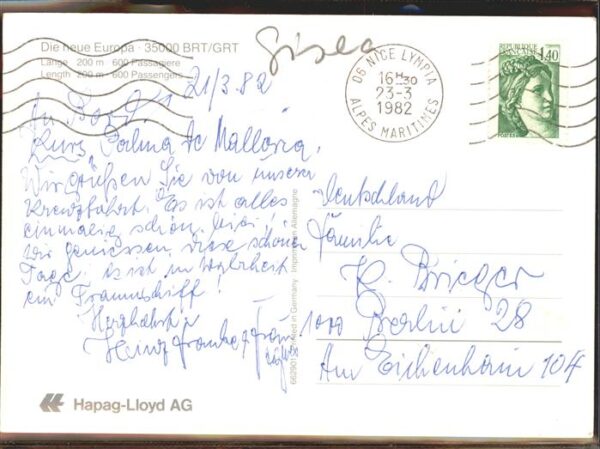 Die neue Europa · 35000 BRT/GRT
Länge 200 m · 600 Passagiere
Length 200 m · 600 Passengers
Gisela
21/3.82
An Bord
Kurs Palma de Mallorca.
Wir grüßen Sie von unserer
Kreuzfahrt. Es ist alles
einmalig schön,
Wir geniessen diese schönen
Tage. es ist in Wahrheit
ein Traumschiff!
Herzlichst
Heinz Franke + Frau
06 NICE LYMPIA
16H30
23-3
1982
ALPES MARITIMES
REPUBLIQUE
FRANÇAISE
1,40
POSTES
Deutschland
Familie
H. Brieger
1000 Berlin 28
Am Eichenhain 104
Printed in Germany Imprimé en Allemagne
Hapag-Lloyd AG